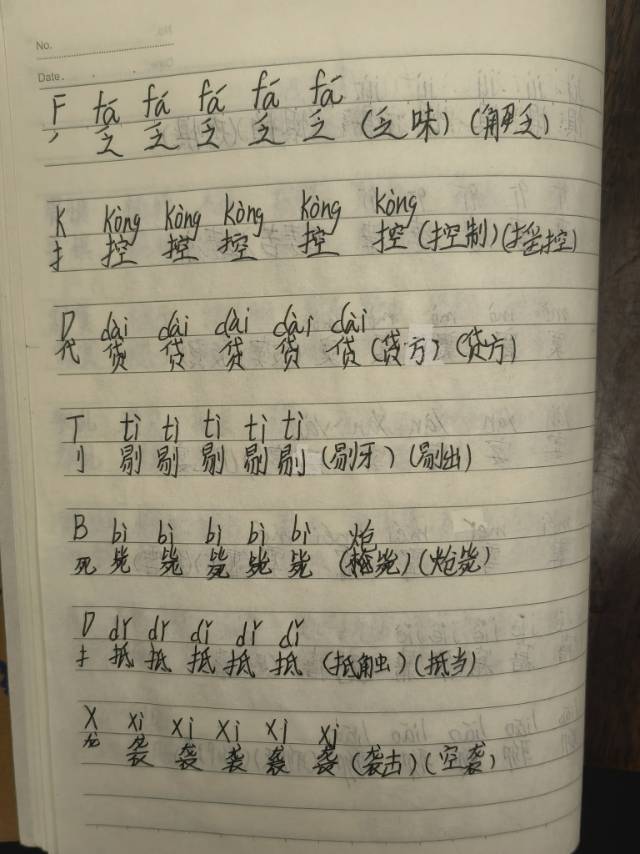 No.
Date.
F fá fá fá fá fá
丿 乏 乏 乏 乏 乏 (乏味) (解乏)
K kòng kòng kòng kòng kòng
扌 控 控 控 控 控 (控制) (摇控)
D dài dài dài dài dài
代 贷 贷 贷 贷 贷 (贷方) (贷方)
T tì tì tì tì tì
刂 剔 剔 剔 剔 剔 (剔牙) (剔出)
B bì bì bì bì bì 炮
死 毙 毙 毙 毙 毙 (毙) (炮毙)
D dǐ dǐ dǐ dǐ dǐ
扌 抵 抵 抵 抵 抵 (抵触) (抵当)
X xí xí xí xí xí
龙 袭 袭 袭 袭 袭 (袭击) (空袭)